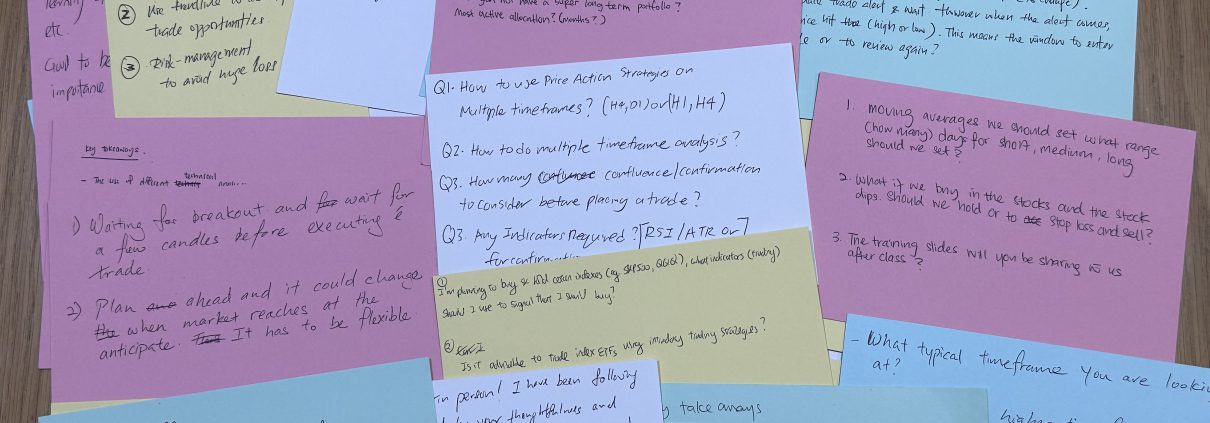 etc.
Goal to be
importance
② Use trendline to
trade opportunities
③ Risk-management
to avoid huge loss
have a super long term portfolio?
Most active allocation? (months?)
trade alert & wait. However when the alert comes,
hit the (high or low). This means the window to enter
or to review again?
Q1. How to use Price Action Strategies on
Multiple timeframes? (H4, D1) or (H1, H4)
Q2. How to do multiple timeframe analysis?
Q3. How many confluence/confirmation
to consider before placing a trade?
Q3. Any Indicators Required? [RSI/ATR or]
for
key takeaways.
- The use of different technical
1) Waiting for breakout and wait for
a few candles before executing
trade.
2) Plan ahead and it could change
when market reaches at the
anticipate. It has to be flexible.
1. moving averages we should set what range
(how many) days for short, medium, long
should we set?
2. What if we buy in the stocks and the stock
dips. Should we hold or to stop loss and sell?
3. The training slides will you be sharing w us
after class?
①
I'm planning to buy & hold certain indexes (eg S&P500, QQQ), what indicators (trading)
should I use to signal that I should buy?
②
Is it advisable to trade index ETFs using intraday trading strategies?
in person! I have been following
your thoughtfulness and
take aways
- What typical timeframe you are looki
at?